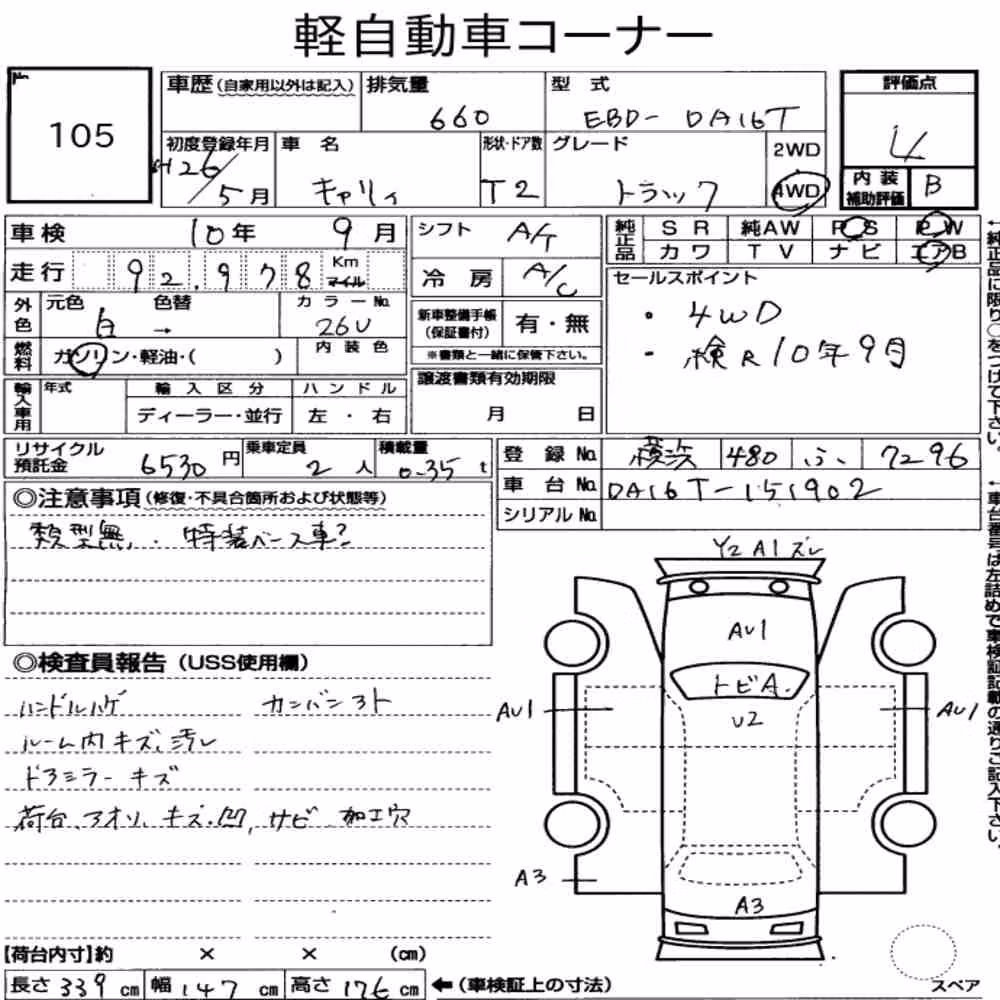 軽自動車コーナー
105
車歴(自家用以外は記入)
排気量 660
型式 EBD-DA16T
評価点 4
内装補助評価 B
初度登録年月 H26/5月
車名 キャリィ
形状・ドア数 T2
グレード トラック
2WD
4WD
車検 10年 9月
シフト A/T
純正品 SR 純AW PS PW
カワ TV ナビ エアB
走行 92,978 Km マイル
冷房 A/C
セールスポイント
・4WD
・検R10年9月
外色 元色 白 色替 → カラーNo. 26U
新車整備手帳(保証書付) 有・無
※書類と一緒に保管下さい。
燃料 ガソリン・軽油・( ) 内装色
輸入車用 年式 輸入区分 ハンドル
ディーラー・並行 左・右
譲渡書類有効期限
月 日
リサイクル預託金 6530円
乗車定員 2人
積載量 0.35t
登録No. 横浜 480 ふ 7296
車台No. DA16T-151902
シリアルNo.
◎注意事項(修復・不具合箇所および状態等)
類型無、・特装ベース車?
◎検査員報告(USS使用欄)
ハンドルハゲ カンバンヌト
ルーム内キズ、汚レ
ドアミラーキズ
荷台、アオリ、キズ・凹、サビ 加工穴
Y2 A1 ズレ
AU1
トビA.
U2
AU1
AU1
A3
A3
スペア
【荷台内寸】約 × × (cm)
長さ 339 cm 幅 147 cm 高さ 176 cm ←(車検証上の寸法)
←純正品に限り○をつけて下さい。
←車台番号は左詰めで車検証記載の通りご記入下さい。